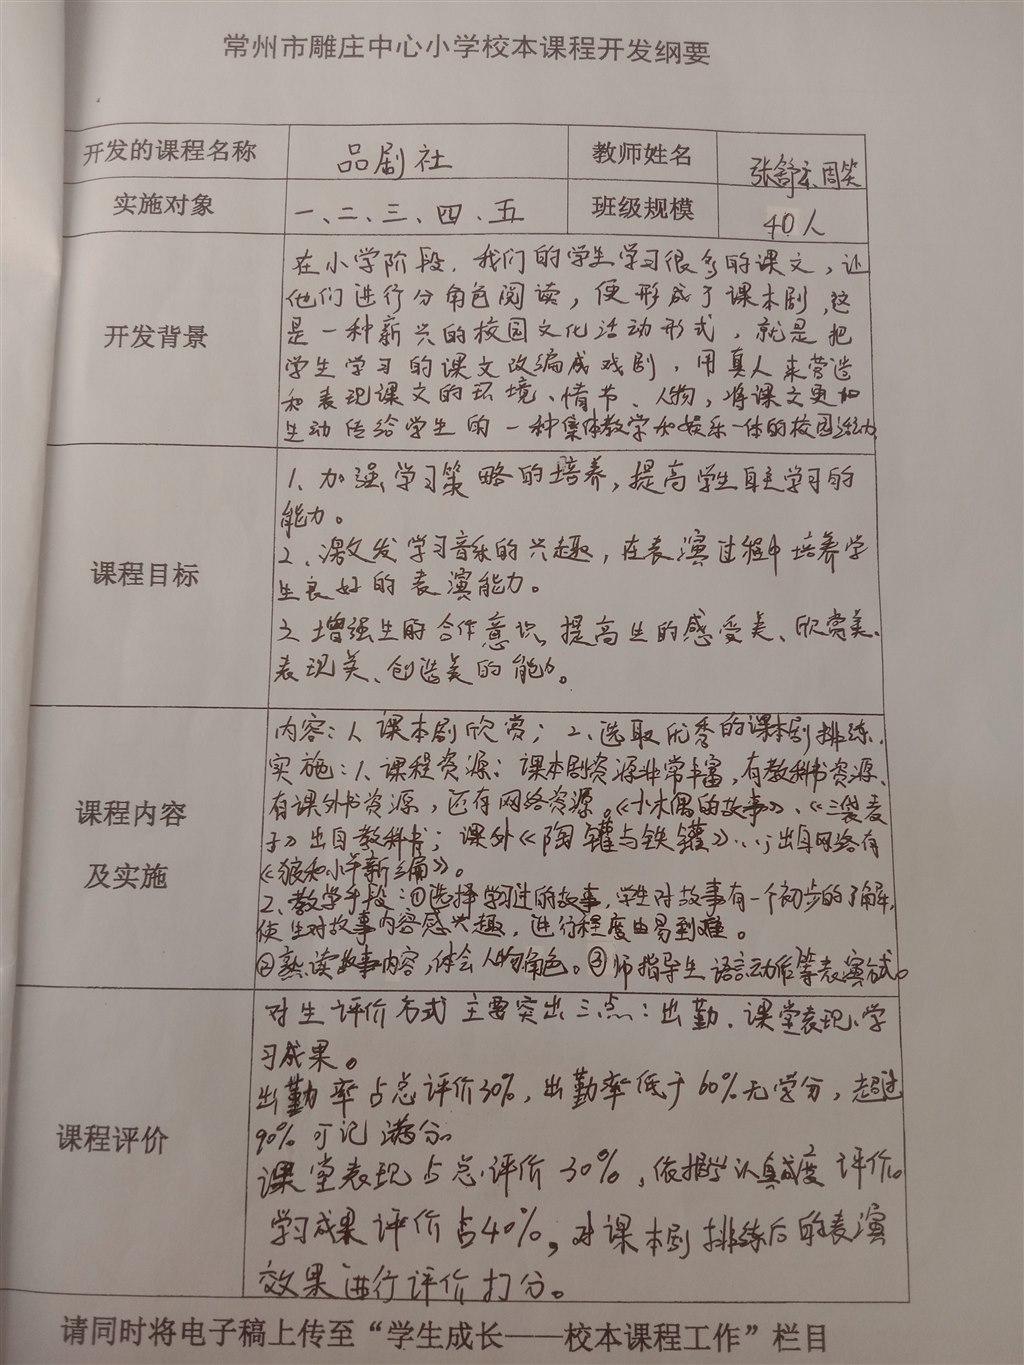 常州市雕庄中心小学校本课程开发纲要
开发的课程名称 品剧社 教师姓名 张舒云、周笑
实施对象 一、二、三、四、五 班级规模 40人
开发背景
在小学阶段,我们的学生学习很多的课文,让
他们进行分角色阅读,便形成了课本剧,这
是一种新兴的校园文化活动形式,就是把
学生学习的课文改编成戏剧,用真人来营造
和表现课文的环境、情节、人物,将课文更加
生动传给学生的一种集体教学和娱乐一体的校园活动
课程目标
1、加强学习策略的培养,提高学生自主学习的
能力。
2、激发学习音乐的兴趣,在表演过程中培养学
生良好的表演能力。
3、增强生的合作意识,提高生的感受美、欣赏美、
表现美、创造美的能力。
课程内容
及实施
内容:1、课本剧欣赏;2、选取优秀的课本剧排练.
实施:1、课程资源:课本剧资源非常丰富,有教科书资源、
有课外书资源,还有网络资源。《小木偶的故事》、《三袋麦
子》出自教科书;课外《陶罐与铁罐》…;出自网络有
《狼和小羊新编》。
2、教学手段:①选择学习过的故事,学生对故事有一个初步的了解,
使生对故事内容感兴趣,进行程度由易到难。
②熟读故事内容,体会人物角色。③师指导生语言动作等表演方式。
课程评价
对生评价方式主要突出三点:出勤、课堂表现、学
习成果。
出勤率占总评价30%,出勤率低于60%无学分,超过
90%可记满分。
课堂表现占总评价30%,依据学认真态度评价。
学习成果评价占40%,对课本剧排练后的表演
效果进行评价打分。
请同时将电子稿上传至“学生成长——校本课程工作”栏目